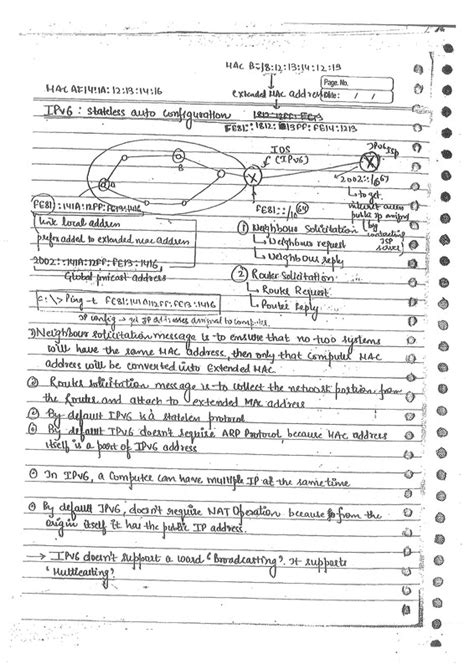 MAC B:18:12:13:14:12:19
Page No.
Date: / /
MAC A:14:1A:12:13:14:16
Extended MAC address
IPv6 : Stateless auto configuration
FE81::1812:
IOS
(IPv6)
ISP
B
X
X
2002::/
to get
internet access
public ip
by
contacting
ISP
server
FE81::141A:12FF:FE13:1416
FE81::/
link local address
prefer added to extended mac address
2002::141A:12FF:FE13:1416,
Global unicast address
① Neighbour Solicitation
Neighbour request
Neighbour reply
② Router Solicitation
Router Request
Router Reply
C:\>Ping -t FE81:141A:12FF:FE13:1416
IP config → get IP addresses assigned to computer.
Neighbour solicitation message is to ensure that no two systems
will have the same MAC address, then only that computer MAC
address will be converted into Extended MAC.
Router solicitation message is to collect the network portion from
the Router and attach to extended MAC address
By default IPv6 is a stateless protocol
By default IPv6 doesn't require ARP Protocol, because MAC address
itself is a part of IPv6 address
In IPv6, a Computer can have multiple IP at the same time
By default IPv6, doesn't require NAT Operation because from the
origin itself it has the public IP address.
→ IPv6 doesn't support a word "Broadcasting". It supports
"Multicasting".